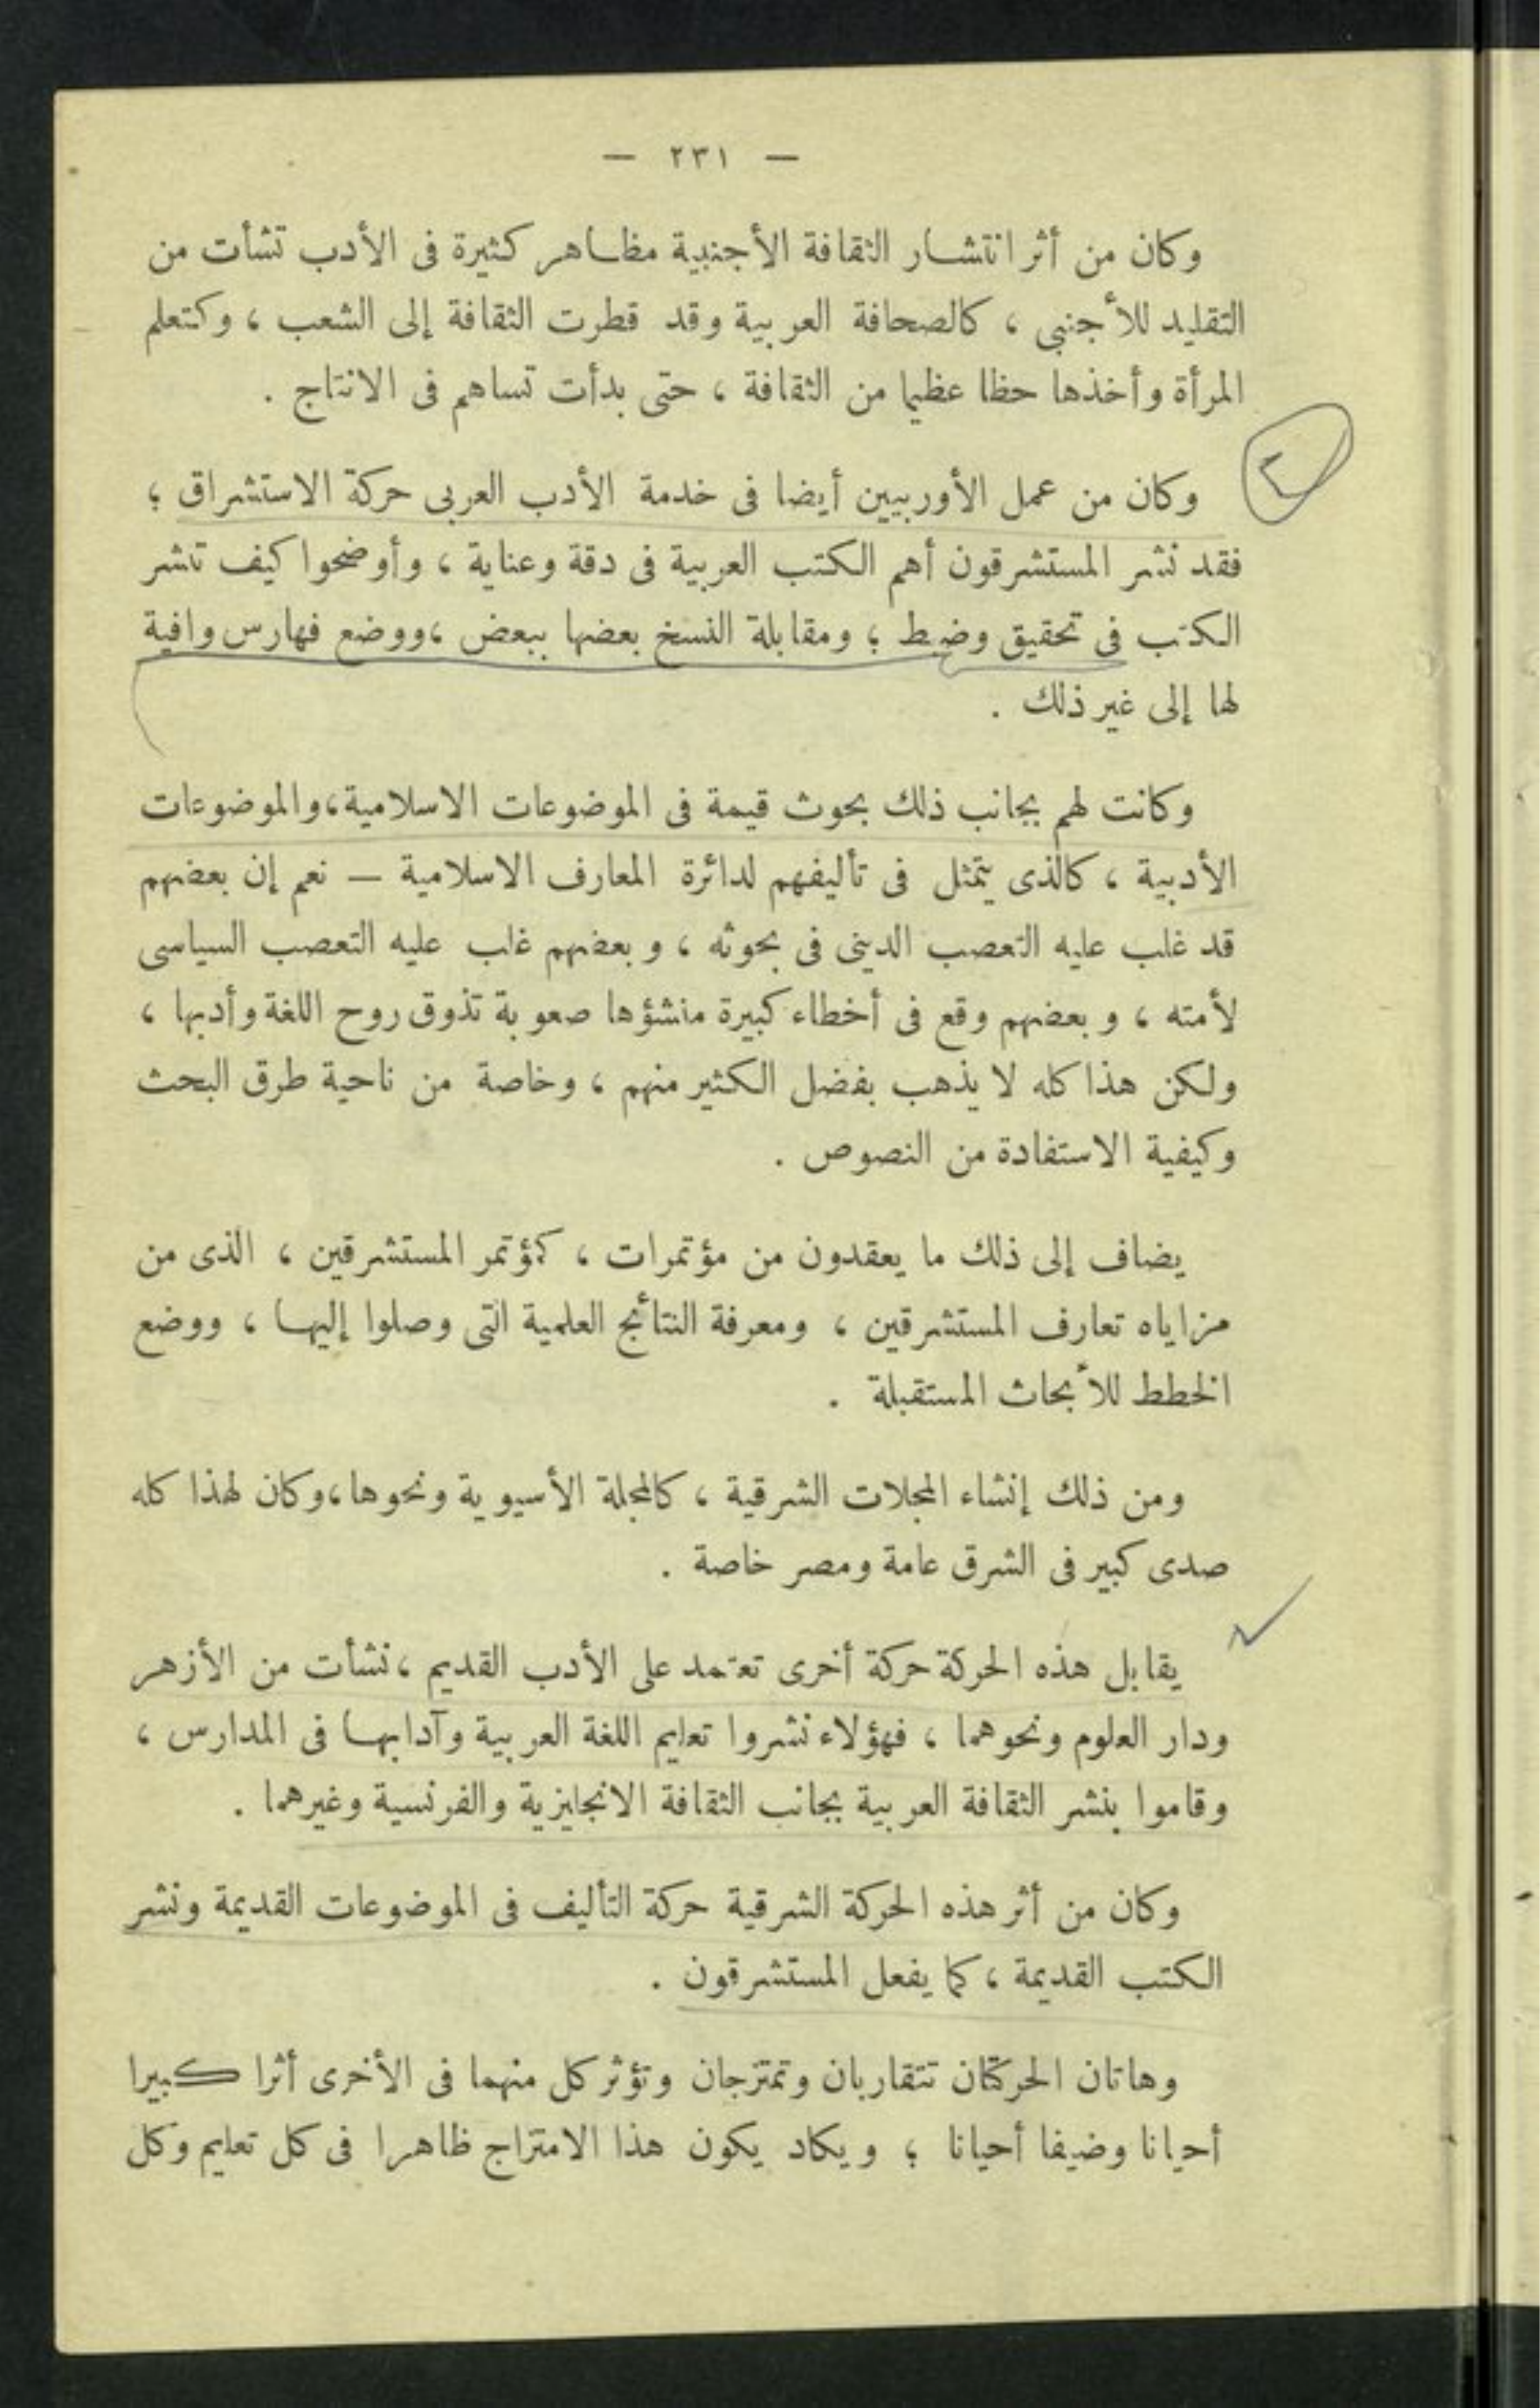 — ٢٣١ —
وكان من أثر انتشار الثقافة الأجنبية مظاهر كثيرة فى الأدب نشأت من
التقليد للأجنبى ، كالصحافة العربية وقد قطرت الثقافة إلى الشعب ، وكتعلم
المرأة وأخذها حظا عظيما من الثقافة ، حتى بدأت تساهم فى الانتاج .
٢
وكان من عمل الأوربيين أيضا فى خدمة الأدب العربى حركة الاستشراق ؛
فقد نشر المستشرقون أهم الكتب العربية فى دقة وعناية ، وأوضحوا كيف تنشر
الكتب فى تحقيق وضبط ؛ ومقابلة النسخ بعضها ببعض ، ووضع فهارس وافية
لها إلى غير ذلك .
وكانت لهم بجانب ذلك بحوث قيمة فى الموضوعات الاسلامية ، والموضوعات
الأدبية ، كالذى يتمثل فى تأليفهم لدائرة المعارف الاسلامية — نعم إن بعضهم
قد غلب عليه التعصب الدينى فى بحوثه ، وبعضهم غلب عليه التعصب السياسى
لأمته ، وبعضهم وقع فى أخطاء كبيرة منشؤها صعوبة تذوق روح اللغة وأدبها ،
ولكن هذا كله لا يذهب بفضل الكثير منهم ، وخاصة من ناحية طرق البحث
وكيفية الاستفادة من النصوص .
يضاف إلى ذلك ما يعقدون من مؤتمرات ، كمؤتمر المستشرقين ، الذى من
مزاياه تعارف المستشرقين ، ومعرفة النتائج العلمية التى وصلوا إليها ، ووضع
الخطط للأبحاث المستقبلة .
ومن ذلك إنشاء المجلات الشرقية ، كالمجلة الأسيوية ونحوها ، وكان لهذا كله
صدى كبير فى الشرق عامة ومصر خاصة .
يقابل هذه الحركة حركة أخرى تعتمد على الأدب القديم ، نشأت من الأزهر
ودار العلوم ونحوهما ، فهؤلاء نشروا تعليم اللغة العربية وآدابها فى المدارس ،
وقاموا بنشر الثقافة العربية بجانب الثقافة الانجليزية والفرنسية وغيرهما .
وكان من أثر هذه الحركة الشرقية حركة التأليف فى الموضوعات القديمة ونشر
الكتب القديمة ، كما يفعل المستشرقون .
وهاتان الحركتان تتقاربان وتمتزجان وتؤثر كل منهما فى الأخرى أثرا كبيرا
أحيانا وضيفا أحيانا ؛ ويكاد يكون هذا الامتزاج ظاهرا فى كل تعليم وكل